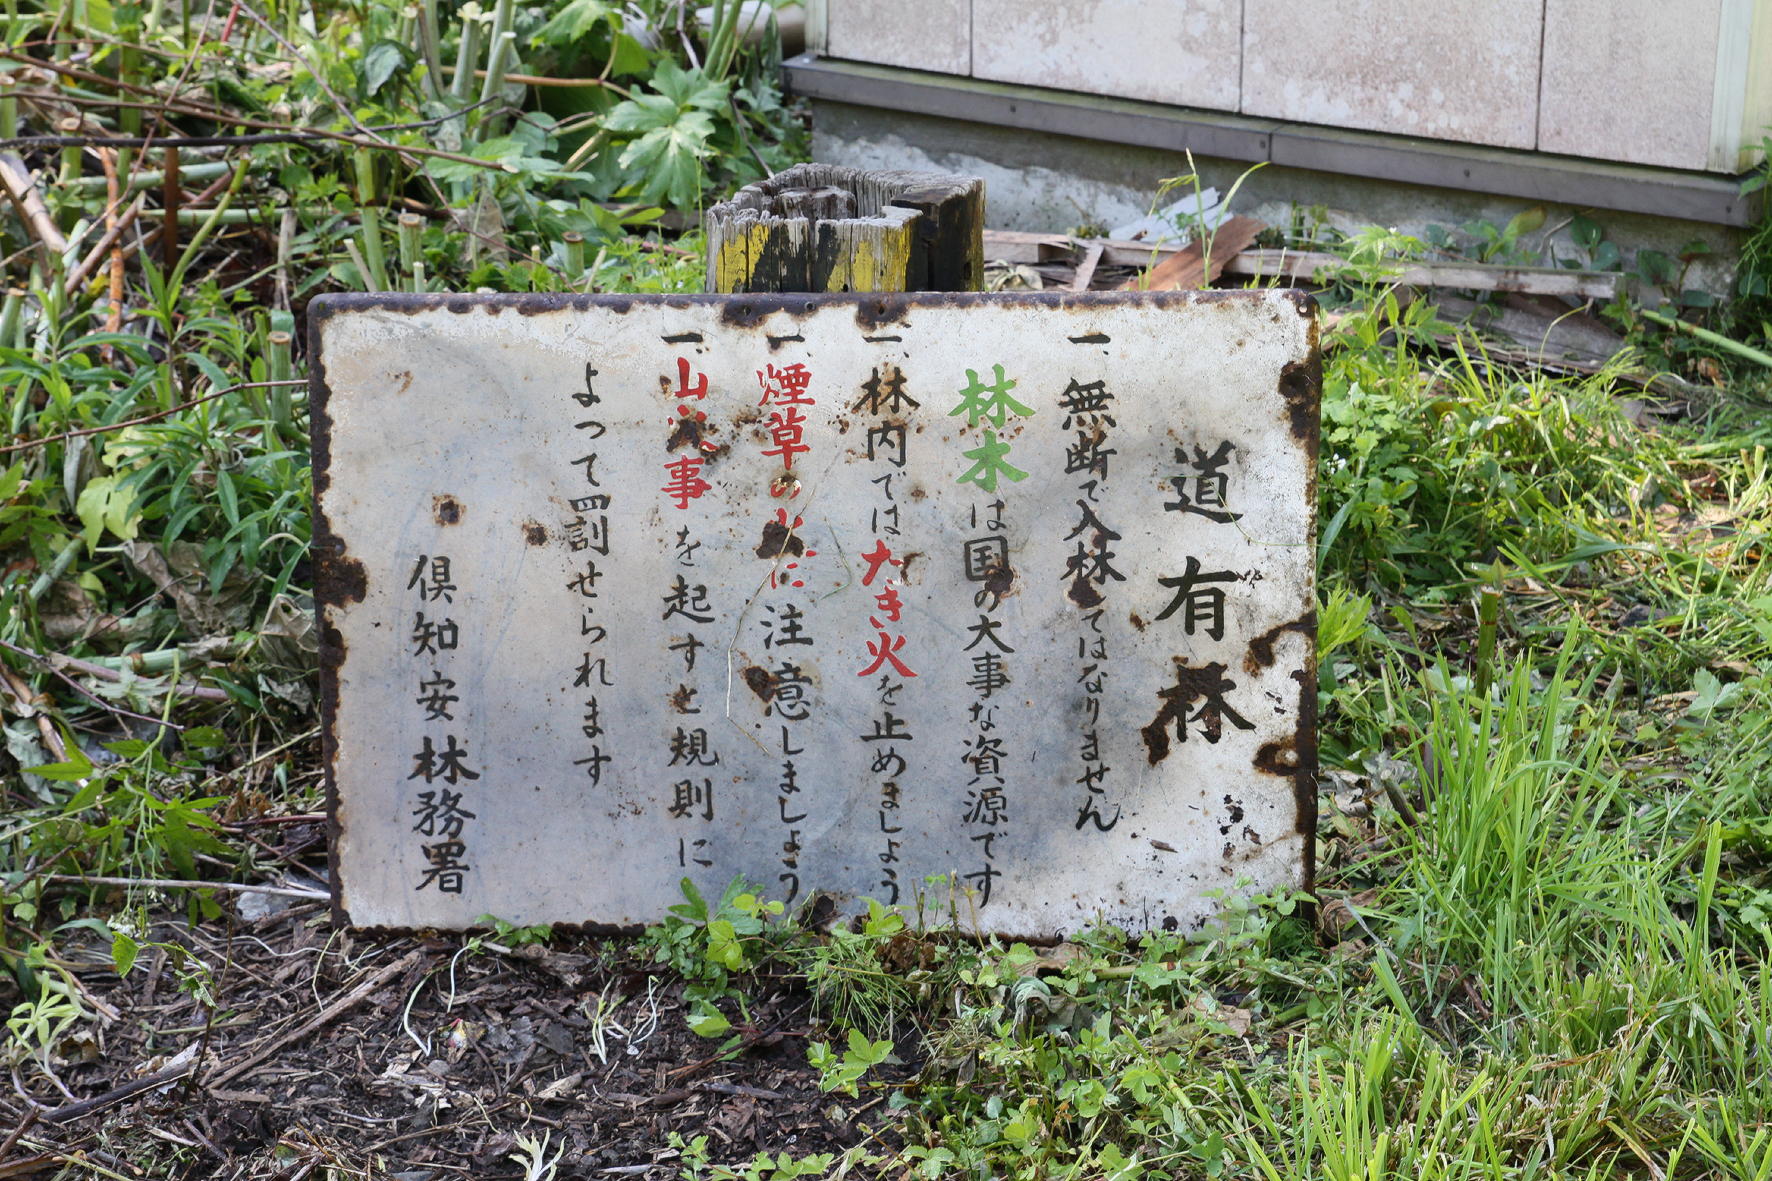 道有林
一、無断で入林してはなりません
林木は国の大事な資源です
一、林内ではたき火を止めましょう
一、煙草の火に注意しましょう
一、山火事を起すと規則に
よって罰せられます
倶知安林務署